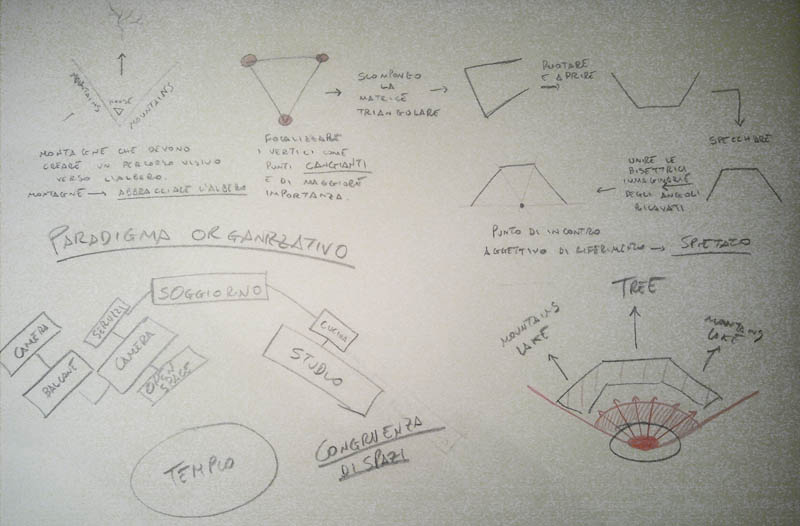 MOUNTAINS
HOUSE
MOUNTAINS
MONTAGNE CHE DEVONO
CREARE UN PERCORSO VISIVO
VERSO L'ALBERO.
MONTAGNE → ABBRACCIARE L'ALBERO
FOCALIZZARE
I VERTICI COME
PUNTI CANGIANTI
E DI MAGGIORE
IMPORTANZA.
SCOMPONGO
LA
MATRICE
TRIANGOLARE
RUOTARE
E APRIRE
SPECCHIARE
UNIRE LE
BISETTRICI
IMMAGINARIE
DEGLI ANGOLI
RICAVATI
PUNTO DI INCONTRO
AGGETTIVO DI RIFERIMENTO → SPIETATO
PARADIGMA ORGANIZZATIVO
SOGGIORNO
CAMERA
BALCONE
SERVIZI
CAMERA
OPEN
SPACE
CUCINA
STUDIO
TEMPIO
CONGRUENZA
DI SPAZI
TREE
MOUNTAINS
LAKE
MOUNTAINS
LAKE